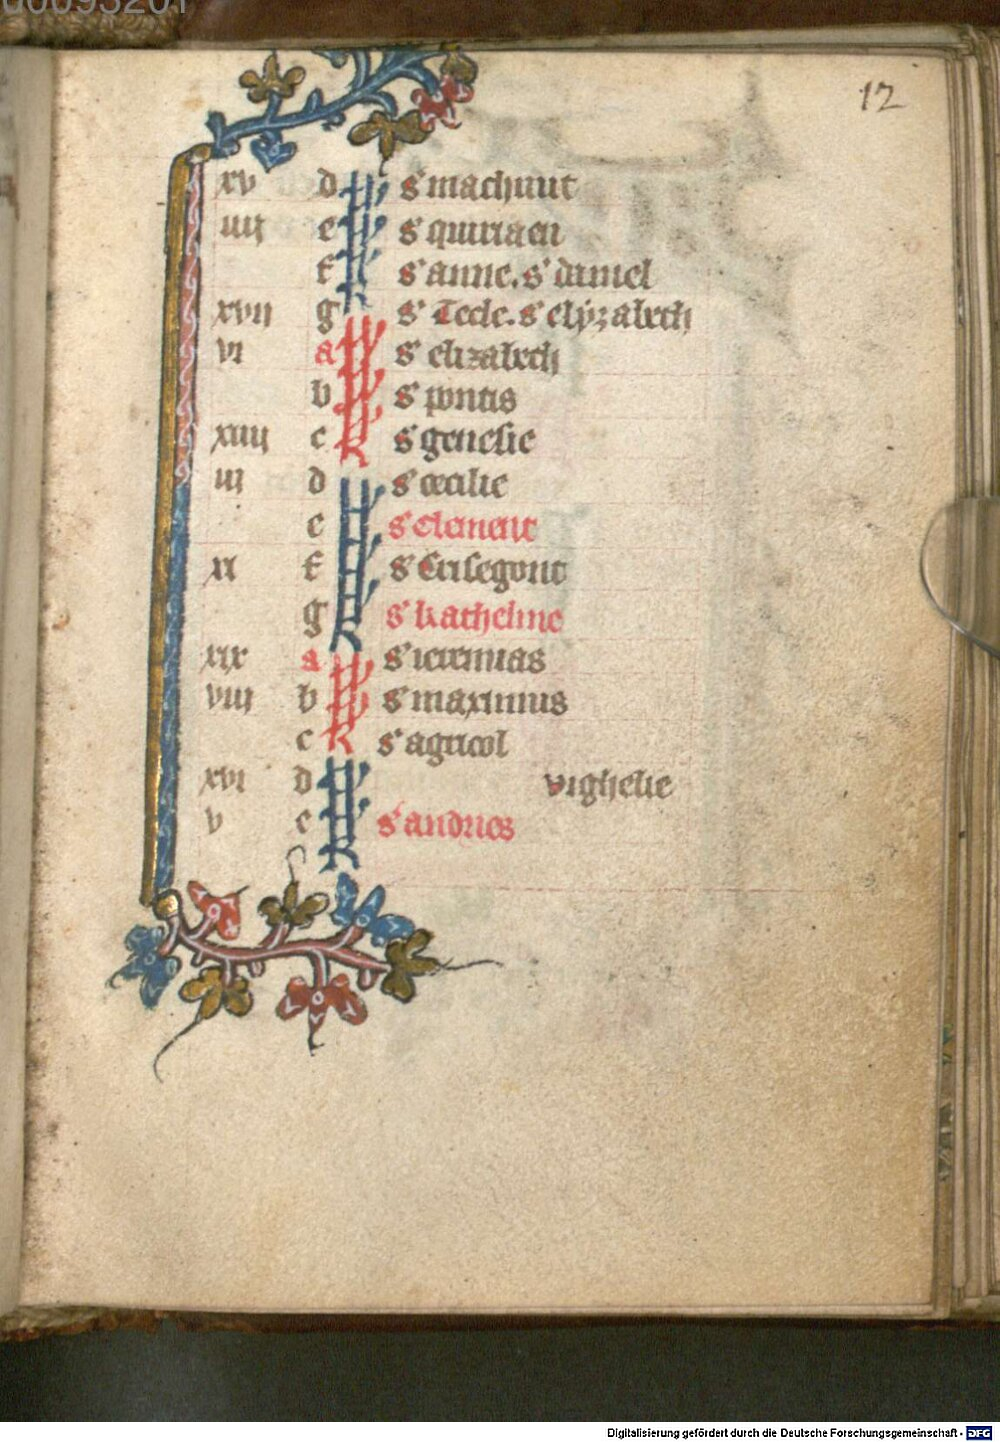 00093201
12
xv d s' machuut
iiij e s' quiriaen
f s' anne. s' daniel
xvii g s' Tecle. s' elyzabeth
vi a s' elizabeth
b s' pontis
xiiij c s' genesie
iij d s' cecilie
e s' clement
xi f s' Crisegont
g s' katheline
xix a s' ieremias
viij b s' maximus
c s' agricol
xvi d vighelie
v e s' andries
Digitalisierung gefördert durch die Deutsche Forschungsgemeinschaft - DFG